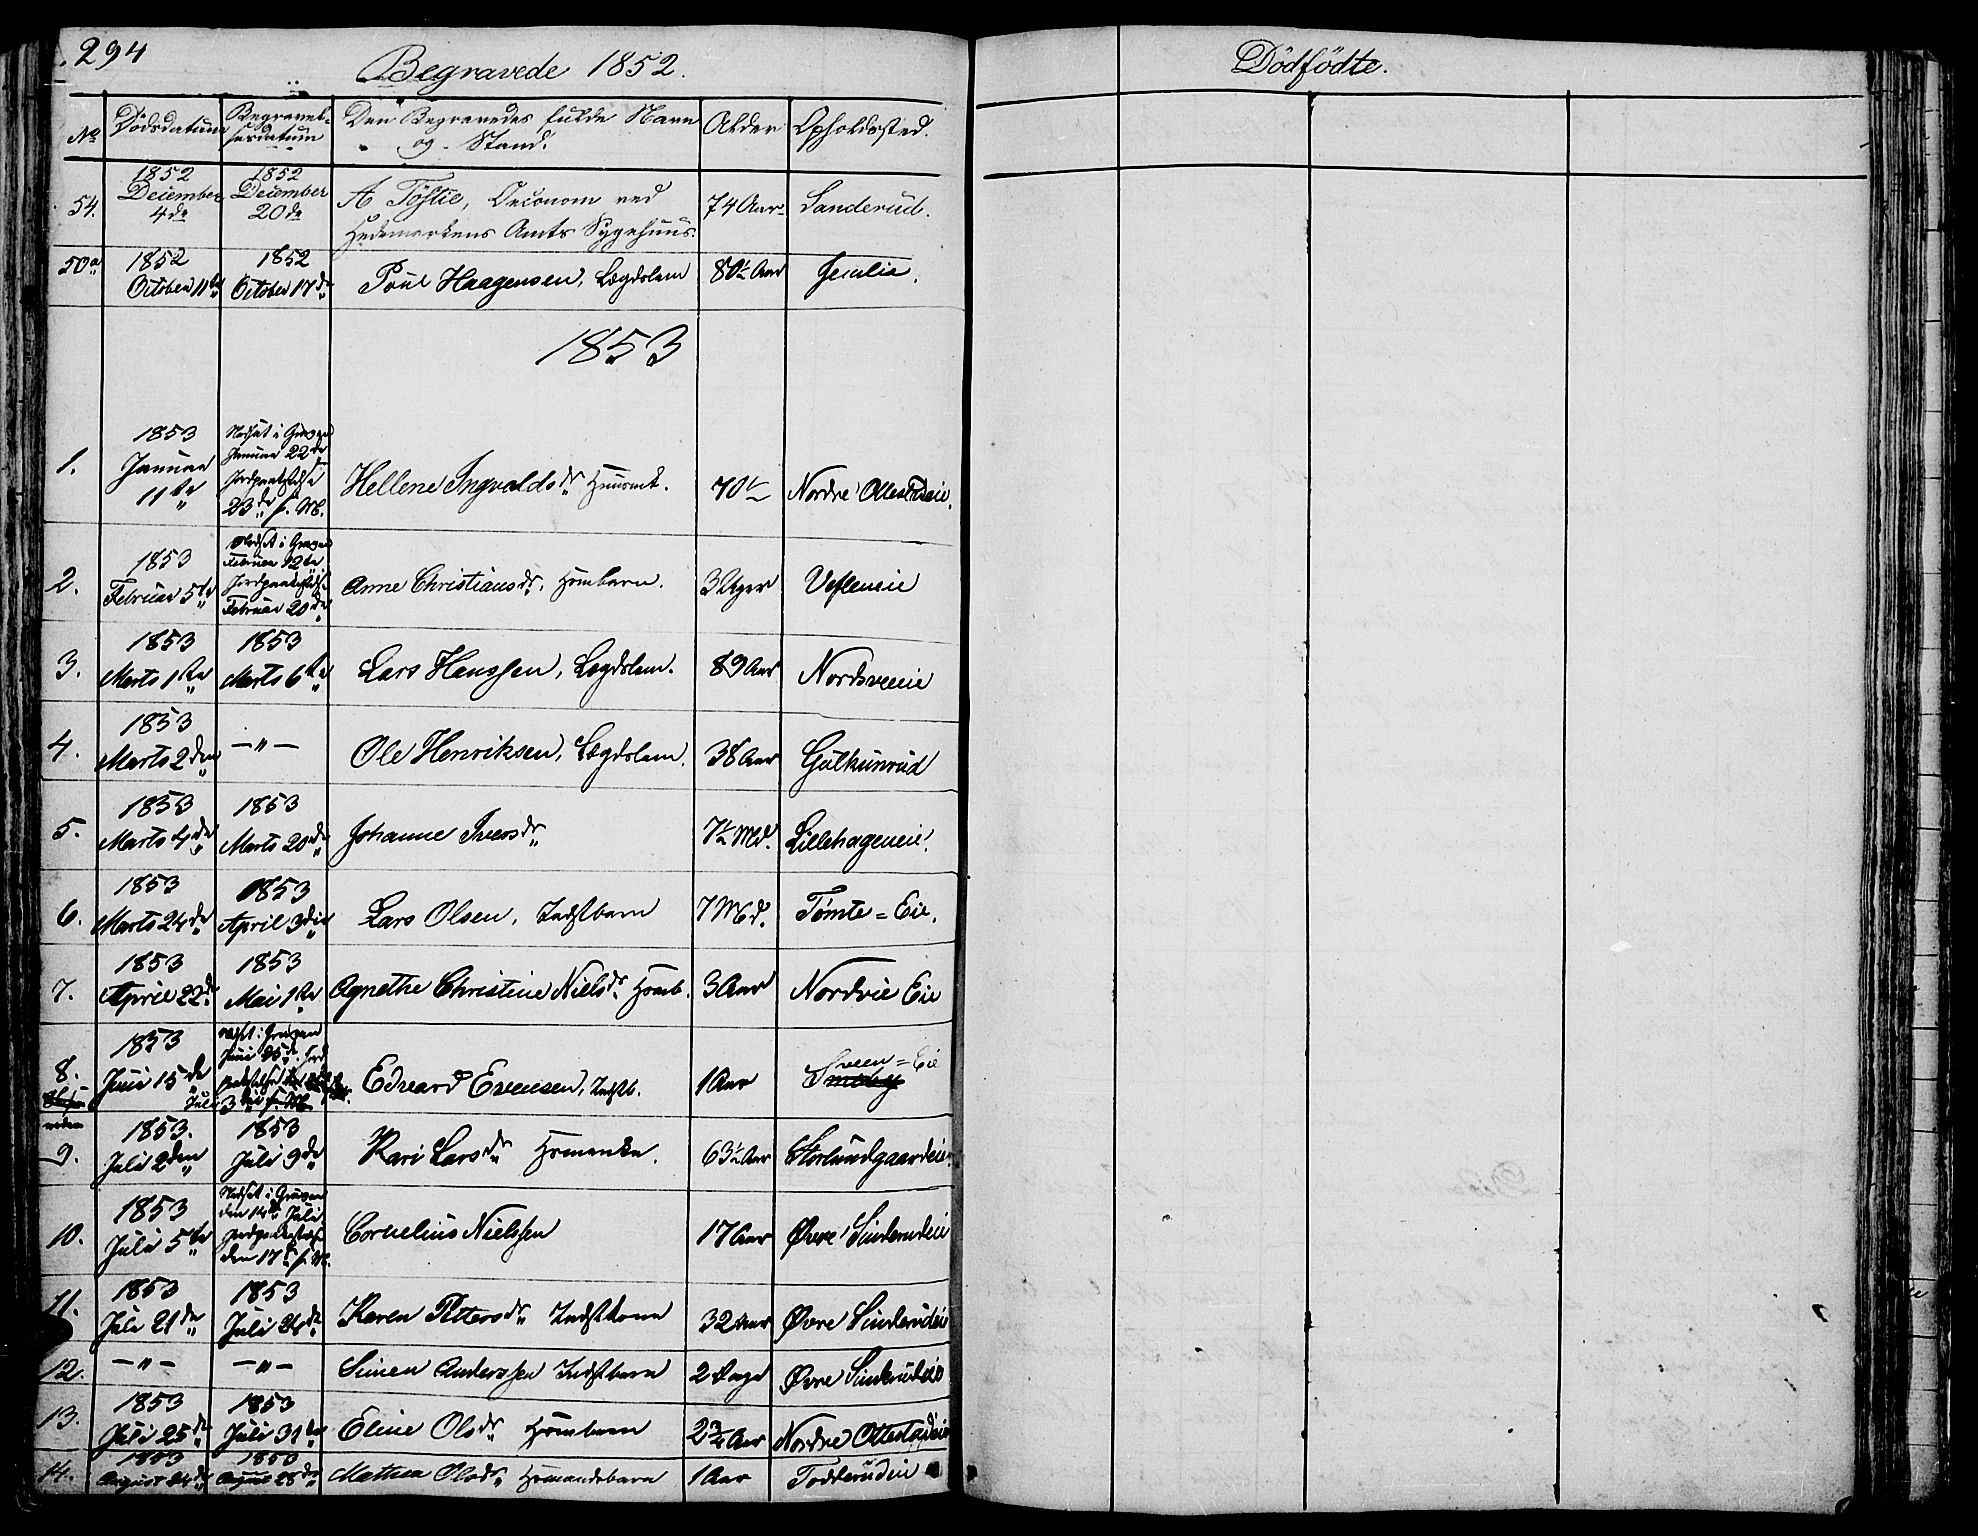 294
Begravede 1852.
No Dödsdatum Begravelsesdatum Den Begravedes fulde Navn og Stand. Alder Opholdssted.
54. 1852 December 4de 1852 December 20de A Töftie, Oeconom ved Hedemarkens Amts Sygehuus. 74 Aar Sanderud.
50a 1852 October 11te 1852 October 17de Poul Haagensen, Lægdslem 80½ Aar
1853
1. 1853 Januar 11te Nedsat i Graven Januar 22de Jordpaakastelse 23de s. M. Hellene Ingvaldsdr Huusmk. 70 Nordre Ottestadeie.
2. 1853 Februar 5te Nedsat i Graven Februar 12te Jordpaakastelse Februar 20de Anne Christiansdr. Hsmbarn. 3 Uger
3. 1853 Marts 1ste 1853 Marts 6te Lars Hanssen, Lægdslem. 89 Aar Nordsveeie
4. 1853 Marts 2den —„— Ole Henriksen, Lægdslem. 38 Aar Gulkunrud
5. 1853 Marts 4de 1853 Marts 20de Johanne Iversdr 7½ Md. Lillehageneie.
6. 1853 Marts 24de 1853 April 3die Lars Olsen, Indstbarn 7 Md. Tömte=Eie.
7. 1853 April 22de 1853 Mai 1ste Agnethe Christine Nielsdr Hsmb. 3 Aar Nordvie Eie
8. 1853 Juni 15de Nedsat i Graven Juni 25de Jord Juli 3die s. M. Edvard Evensen, Indstb. 1 Aar Sveen=Eie
9. 1853. Juli 2den 1853 Juli 9de Kari Larsdr Hsmenke. 63½ Aar Storlundgaardeie.
10. 1853 Juli 5te Nedsat i Graven den 14de Juli Jordpaakastelse den 17de s. M. Cornelius Nielssen 17 Aar Øvre Sinderudeie
11. 1853 Juli 21de 1853 Juli 24de Karen Pettersdr Indstkone 32 Aar Øvre Sinderudeie
12. —„— —„— Simen Anderssen Indstbarn 2 Dage Øvre Sinderudeie
13. 1853 Juli 25de 1853 Juli 31te Eline Olsdr Hsmbarn 2¾ Aar Nordre Ottestadeie
14. 1853 August 24de 1853 August 28de Mathea Olsdr Hsmandsbarn 1 Aar Todderudeie
Dödfödte.